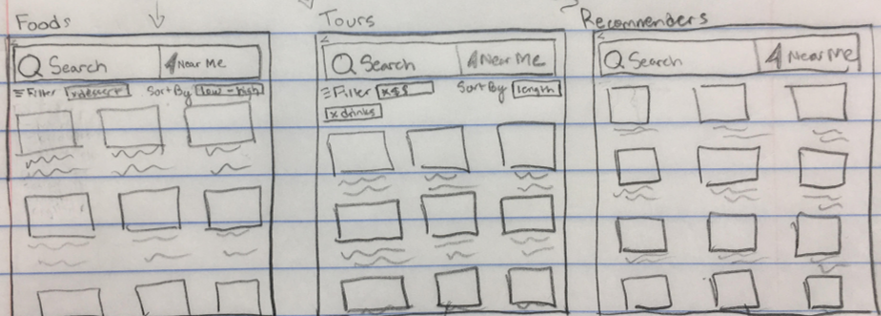 Foods
Search
Near Me
Filter
x dessert
Sort By
low - high
Tours
Search
Near Me
Filter
x $$
Sort By
length
x drinks
Recommenders
Search
Near Me